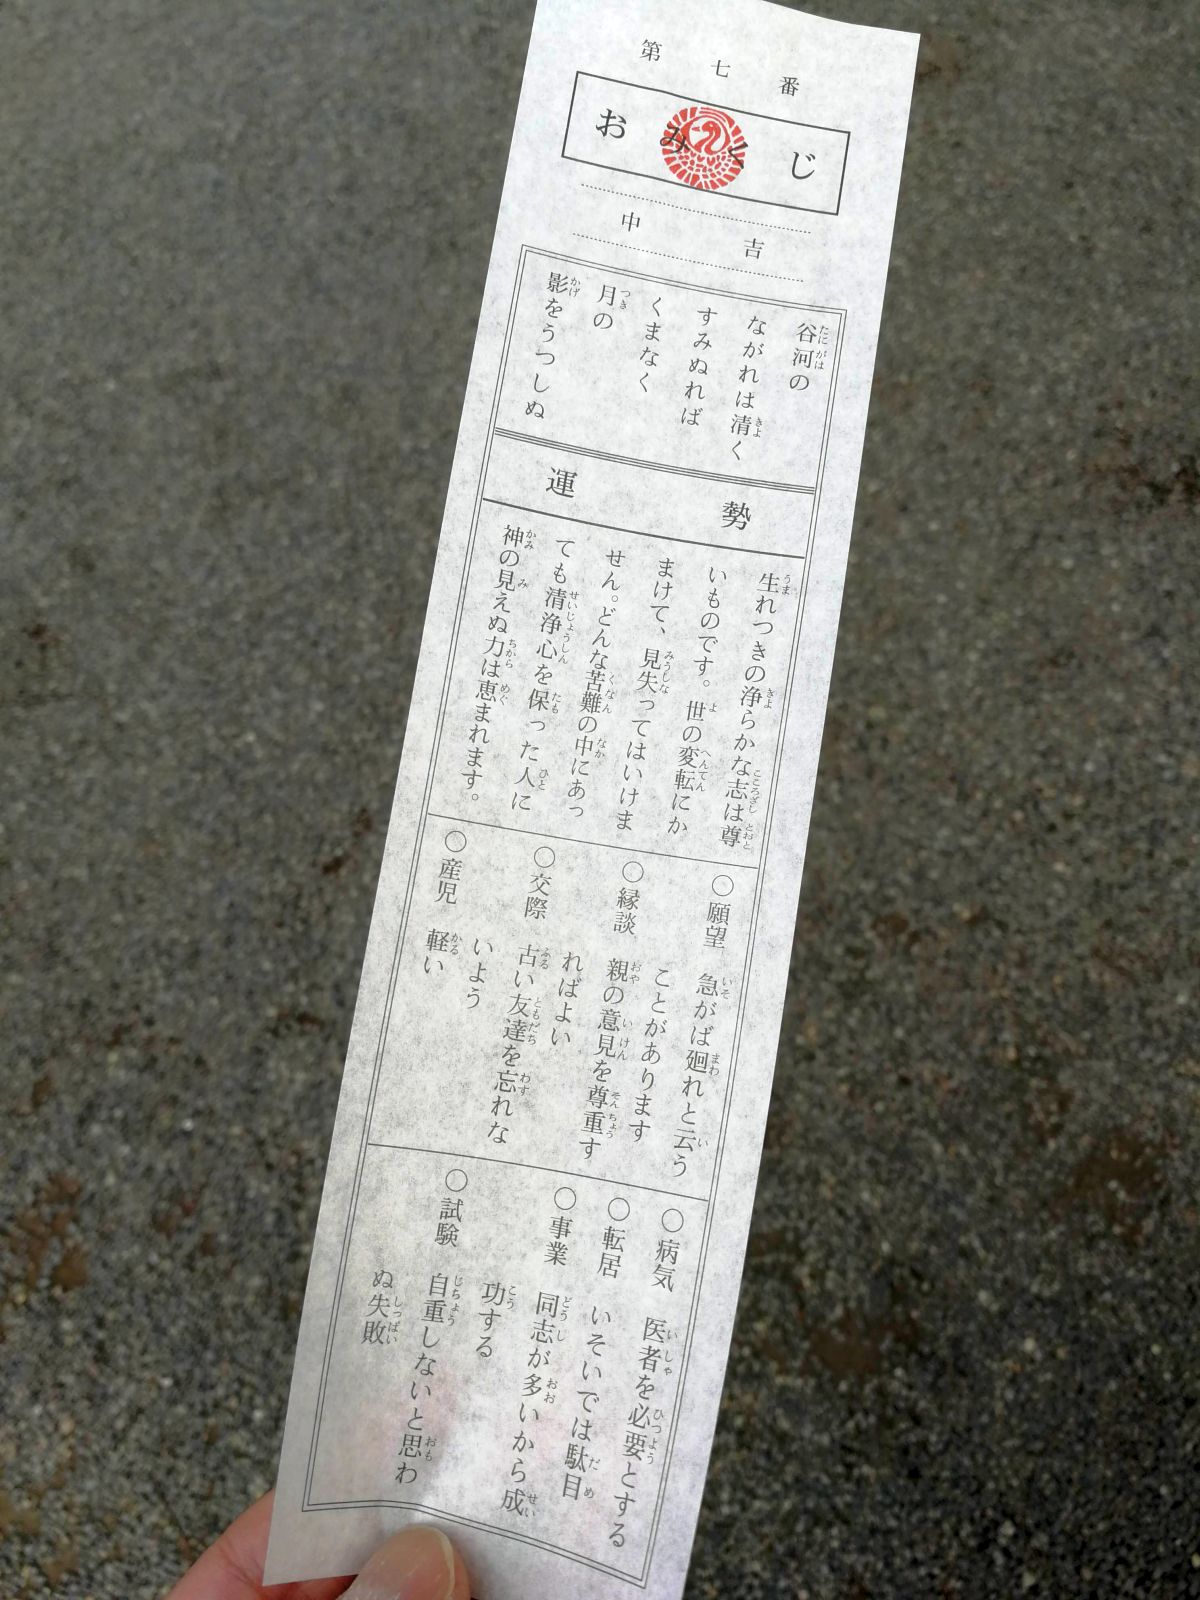 第七番
おみくじ
中吉
谷河の
ながれは清く
すみぬれば
くまなく
月の
影をうつしぬ
運勢
生れつきの浄らかな志は尊
いものです。世の変転にか
まけて、見失ってはいけま
せん。どんな苦難の中にあっ
ても清浄心を保った人に
神の見えぬ力は恵まれます。
○願望 急がば廻れと云う
ことがあります
○縁談 親の意見を尊重す
ればよい
○交際 古い友達を忘れな
いよう
○産児 軽い
○病気 医者を必要とする
○転居 いそいでは駄目
○事業 同志が多いから成
功する
○試験 自重しないと思わ
ぬ失敗